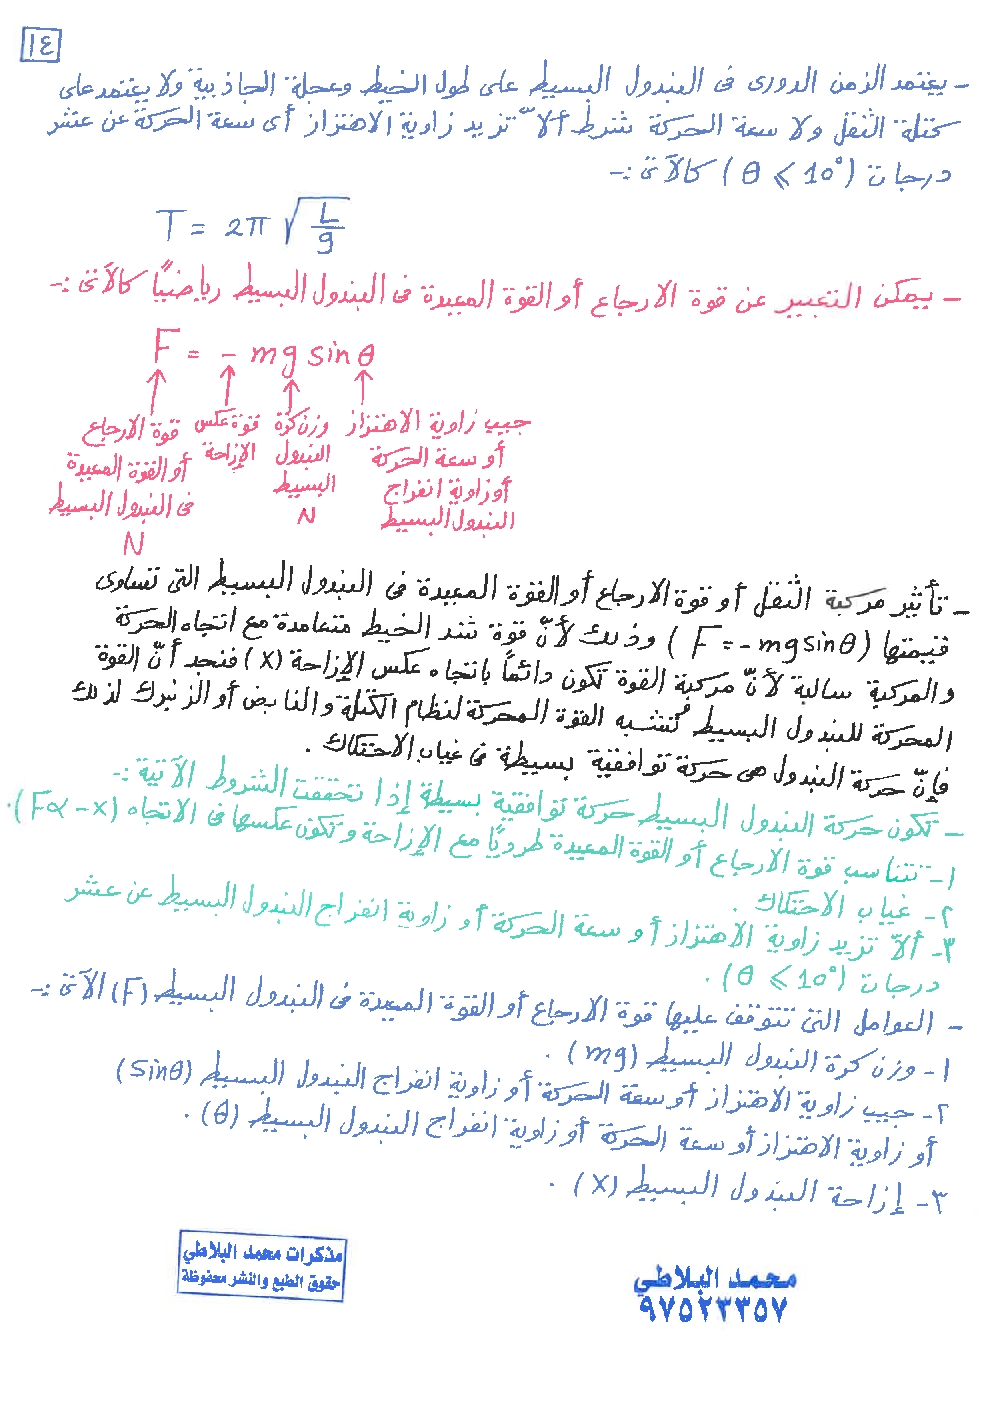 ١٤
- يعتمد الزمن الدورى فى البندول البسيط على طول الخيط وعجلة الجاذبية ولا يعتمد على
كتلة الثقل ولا سعة الحركة شرط ألاّ تزيد زاوية الاهتزاز أى سعة الحركة عن عشر
درجات (θ ⩽ 10°) كالآتى :-
T = 2π √(L/g)
- يمكن التعبير عن قوة الارجاع أو القوة المعيدة فى البندول البسيط رياضيًا كالآتى :-
F = - mg sin θ
قوة الارجاع أو القوة المعيدة فى البندول البسيط N
قوة عكس الإزاحة
وزن كرة البندول البسيط N
جيب زاوية الاهتزاز أو سعة الحركة أو زاوية انفراج البندول البسيط
- تأثير مركبة الثقل أو قوة الارجاع أو القوة المعيدة فى البندول البسيط التى تساوى
قيمتها (F = - mg sinθ) وذلك لأنّ قوة شد الخيط متعامدة مع اتجاه الحركة
والمركبة سالبة لأنّ مركبة القوة تكون دائماً باتجاه عكس الإزاحة (X) فنجد أنّ القوة
المحركة للبندول البسيط تُشبه القوة المحركة لنظام الكتلة والنابض أو الزنبرك لذلك
فإنّ حركة البندول هى حركة توافقية بسيطة فى غياب الاحتكاك .
- تكون حركة البندول البسيط حركة توافقية بسيطة إذا تحققت الشروط الآتية :-
١- تتناسب قوة الارجاع أو القوة المعيدة طرديًا مع الإزاحة وتكون عكسها فى الاتجاه (F∝ -X).
٢- غياب الاحتكاك .
٣- ألاّ تزيد زاوية الاهتزاز أو سعة الحركة أو زاوية انفراج البندول البسيط عن عشر
درجات (θ ⩽ 10°) .
- العوامل التى تتوقف عليها قوة الارجاع أو القوة المعيدة فى البندول البسيط (F) الآتى :-
١- وزن كرة البندول البسيط (mg) .
٢- جيب زاوية الاهتزاز أو سعة الحركة أو زاوية انفراج البندول البسيط (Sinθ)
أو زاوية الاهتزاز أو سعة الحركة أو زاوية انفراج البندول البسيط (θ) .
٣- إزاحة البندول البسيط (X) .
مذكرات محمد البلاطي
حقوق الطبع والنشر محفوظة
محمد البلاطي
٩٧٥٢٣٣٥٧